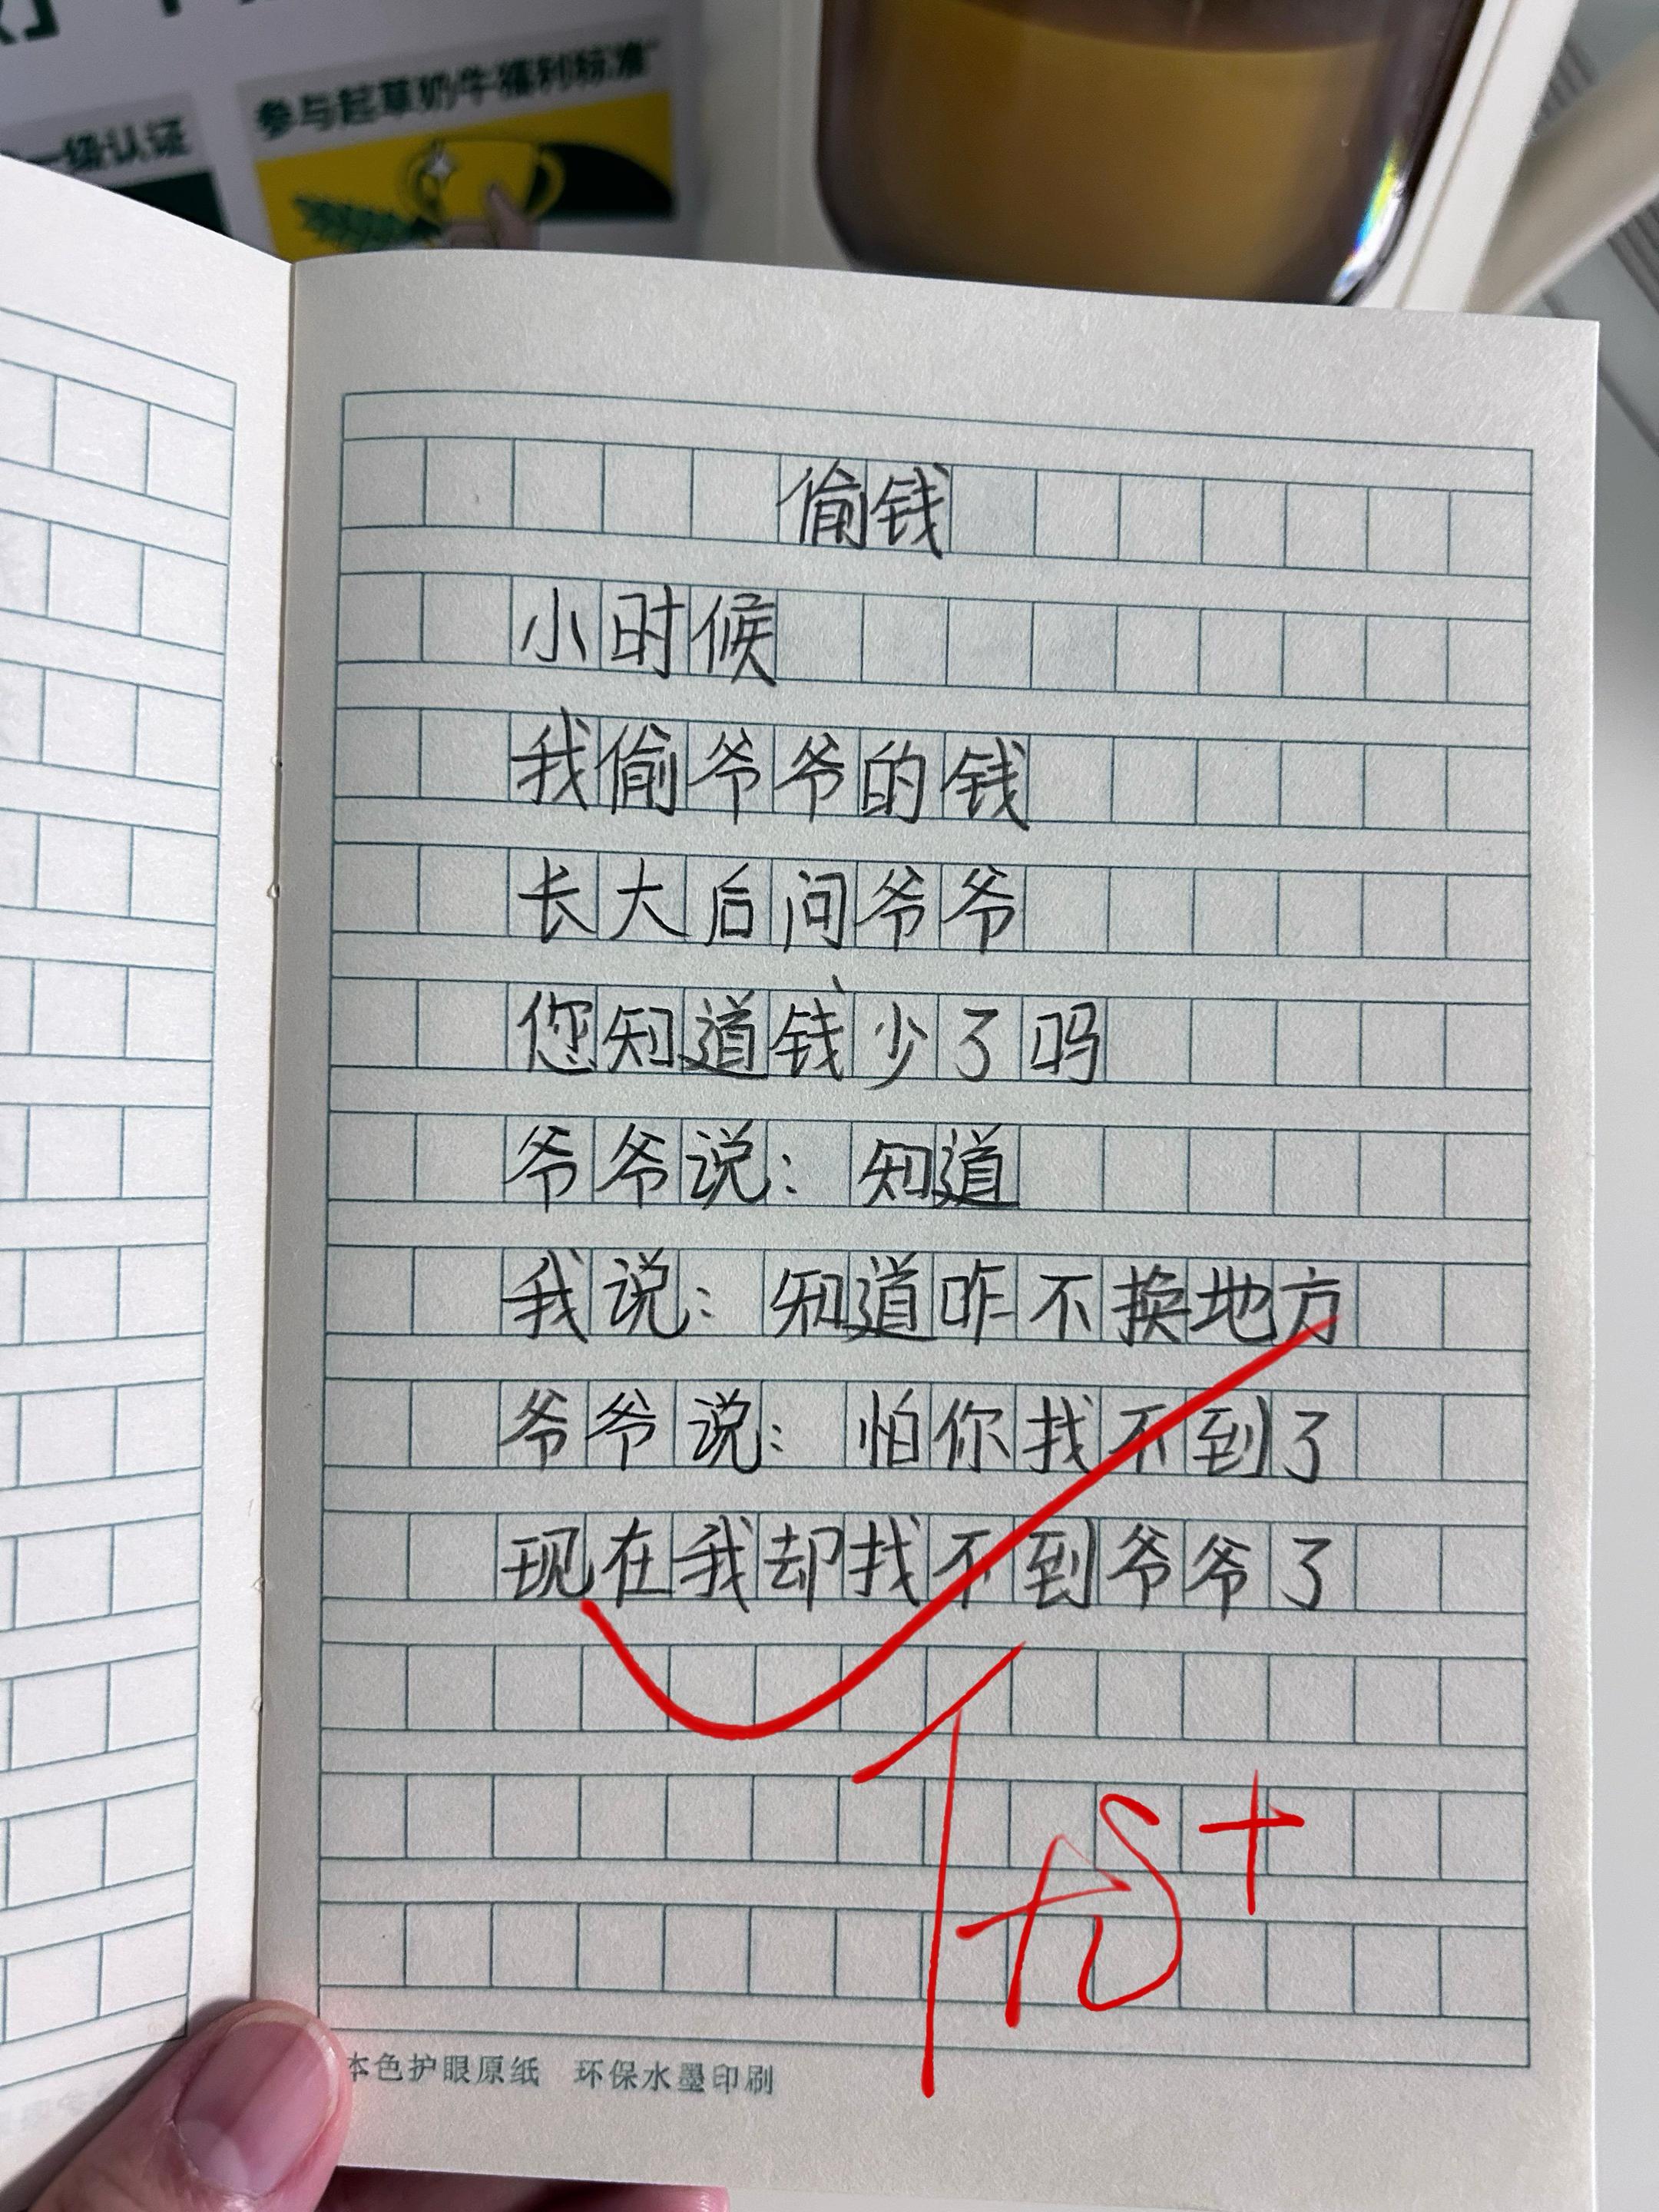 参与起草奶牛福利标准
一级认证
偷钱
小时候
我偷爷爷的钱
长大后问爷爷
您知道钱少了吗
爷爷说：知道
我说：知道咋不换地方
爷爷说：怕你找不到了
现在我却找不到爷爷了
优+
本色护眼原纸 环保水墨印刷